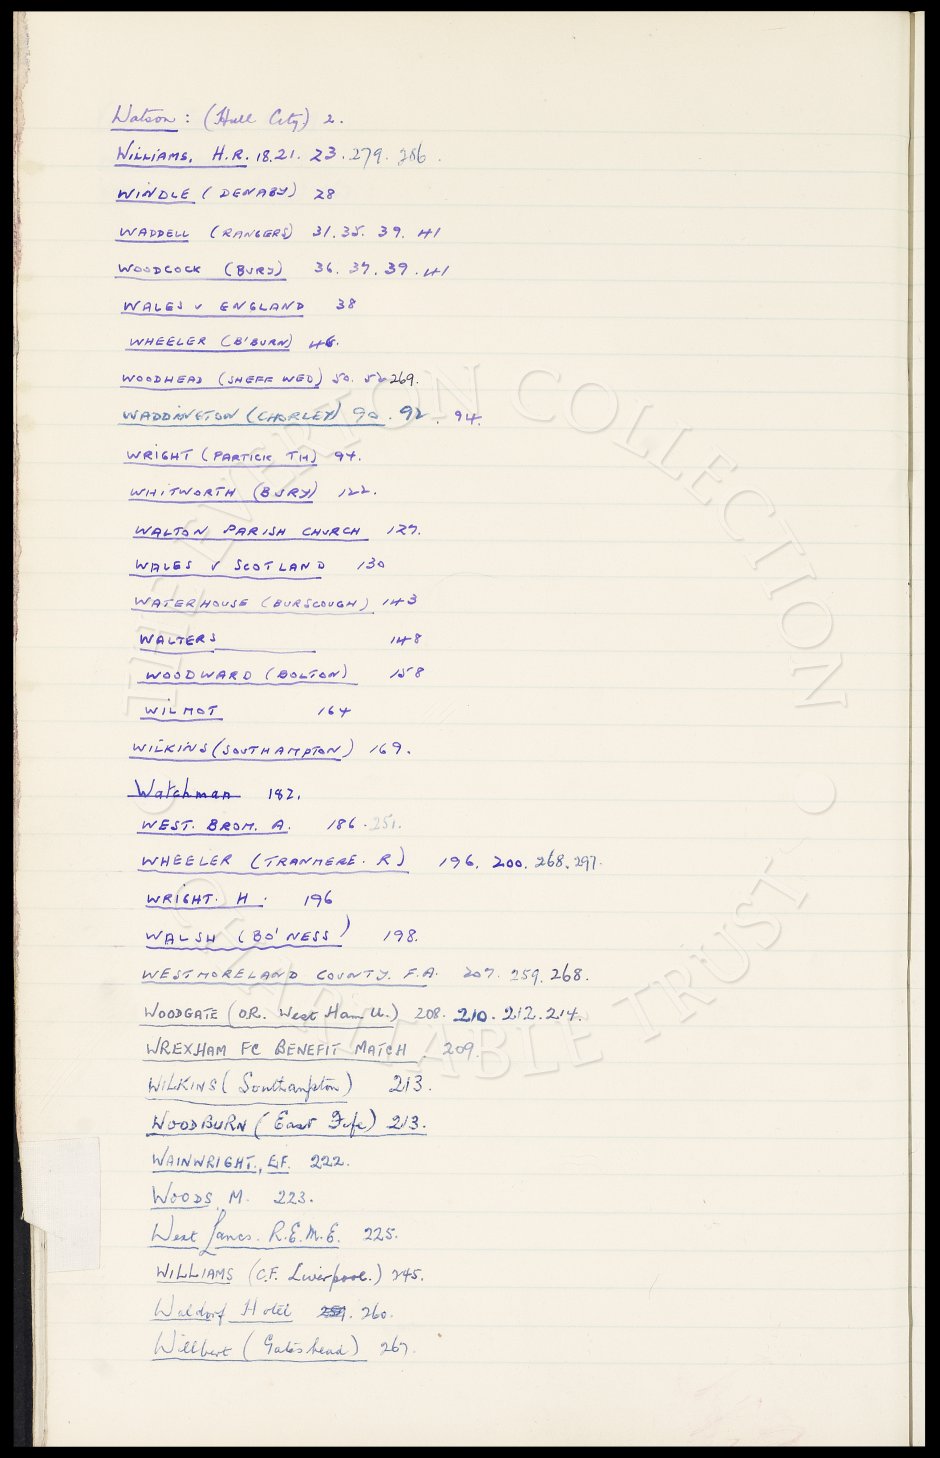 Watson: (Hull City) 2.
WILLIAMS. H.R. 18.21. 23. 279. 286.
WINDLE (DENABY) 28
WADDELL (RANGERS) 31. 35. 39. 41
WOODCOCK (BURY) 36. 37. 39. 41
WALES v ENGLAND 38
WHEELER (B'BURN) 46.
WOODHEAD (SHEFF WED) 50. 52 269.
WADDINGTON (CHORLEY) 90. 92. 94.
WRIGHT (PARTICK TH) 94.
WHITWORTH (BURY) 122.
WALTON PARISH CHURCH 127.
WALES v SCOTLAND 130
WATERHOUSE (BURSCOUGH) 143
WALTERS 148
WOODWARD (BOLTON) 158
WILMOT 164
WILKINS (SOUTHAMPTON) 169.
Watchman 182.
WEST. BROM. A. 186. 251.
WHEELER (TRANMERE. R) 196. 200. 268. 297.
WRIGHT. H. 196
WALSH (BO'NESS) 198.
WESTMORELAND COUNTY. F.A. 207. 259. 268.
WOODGATE (OR. West Ham U.) 208. 210. 212. 214.
WREXHAM FC BENEFIT MATCH. 209.
WILKINS (Southampton) 213.
WOODBURN (East Fife) 213.
WAINWRIGHT., E.F. 222.
WOODS M. 223.
West Lancs. R.E.M.E. 225.
WILLIAMS (C.F. Liverpool.) 245.
Waldorf Hotel 260.
Willbert (Gateshead) 267.
THE EVERTON COLLECTION
CHARITABLE TRUST